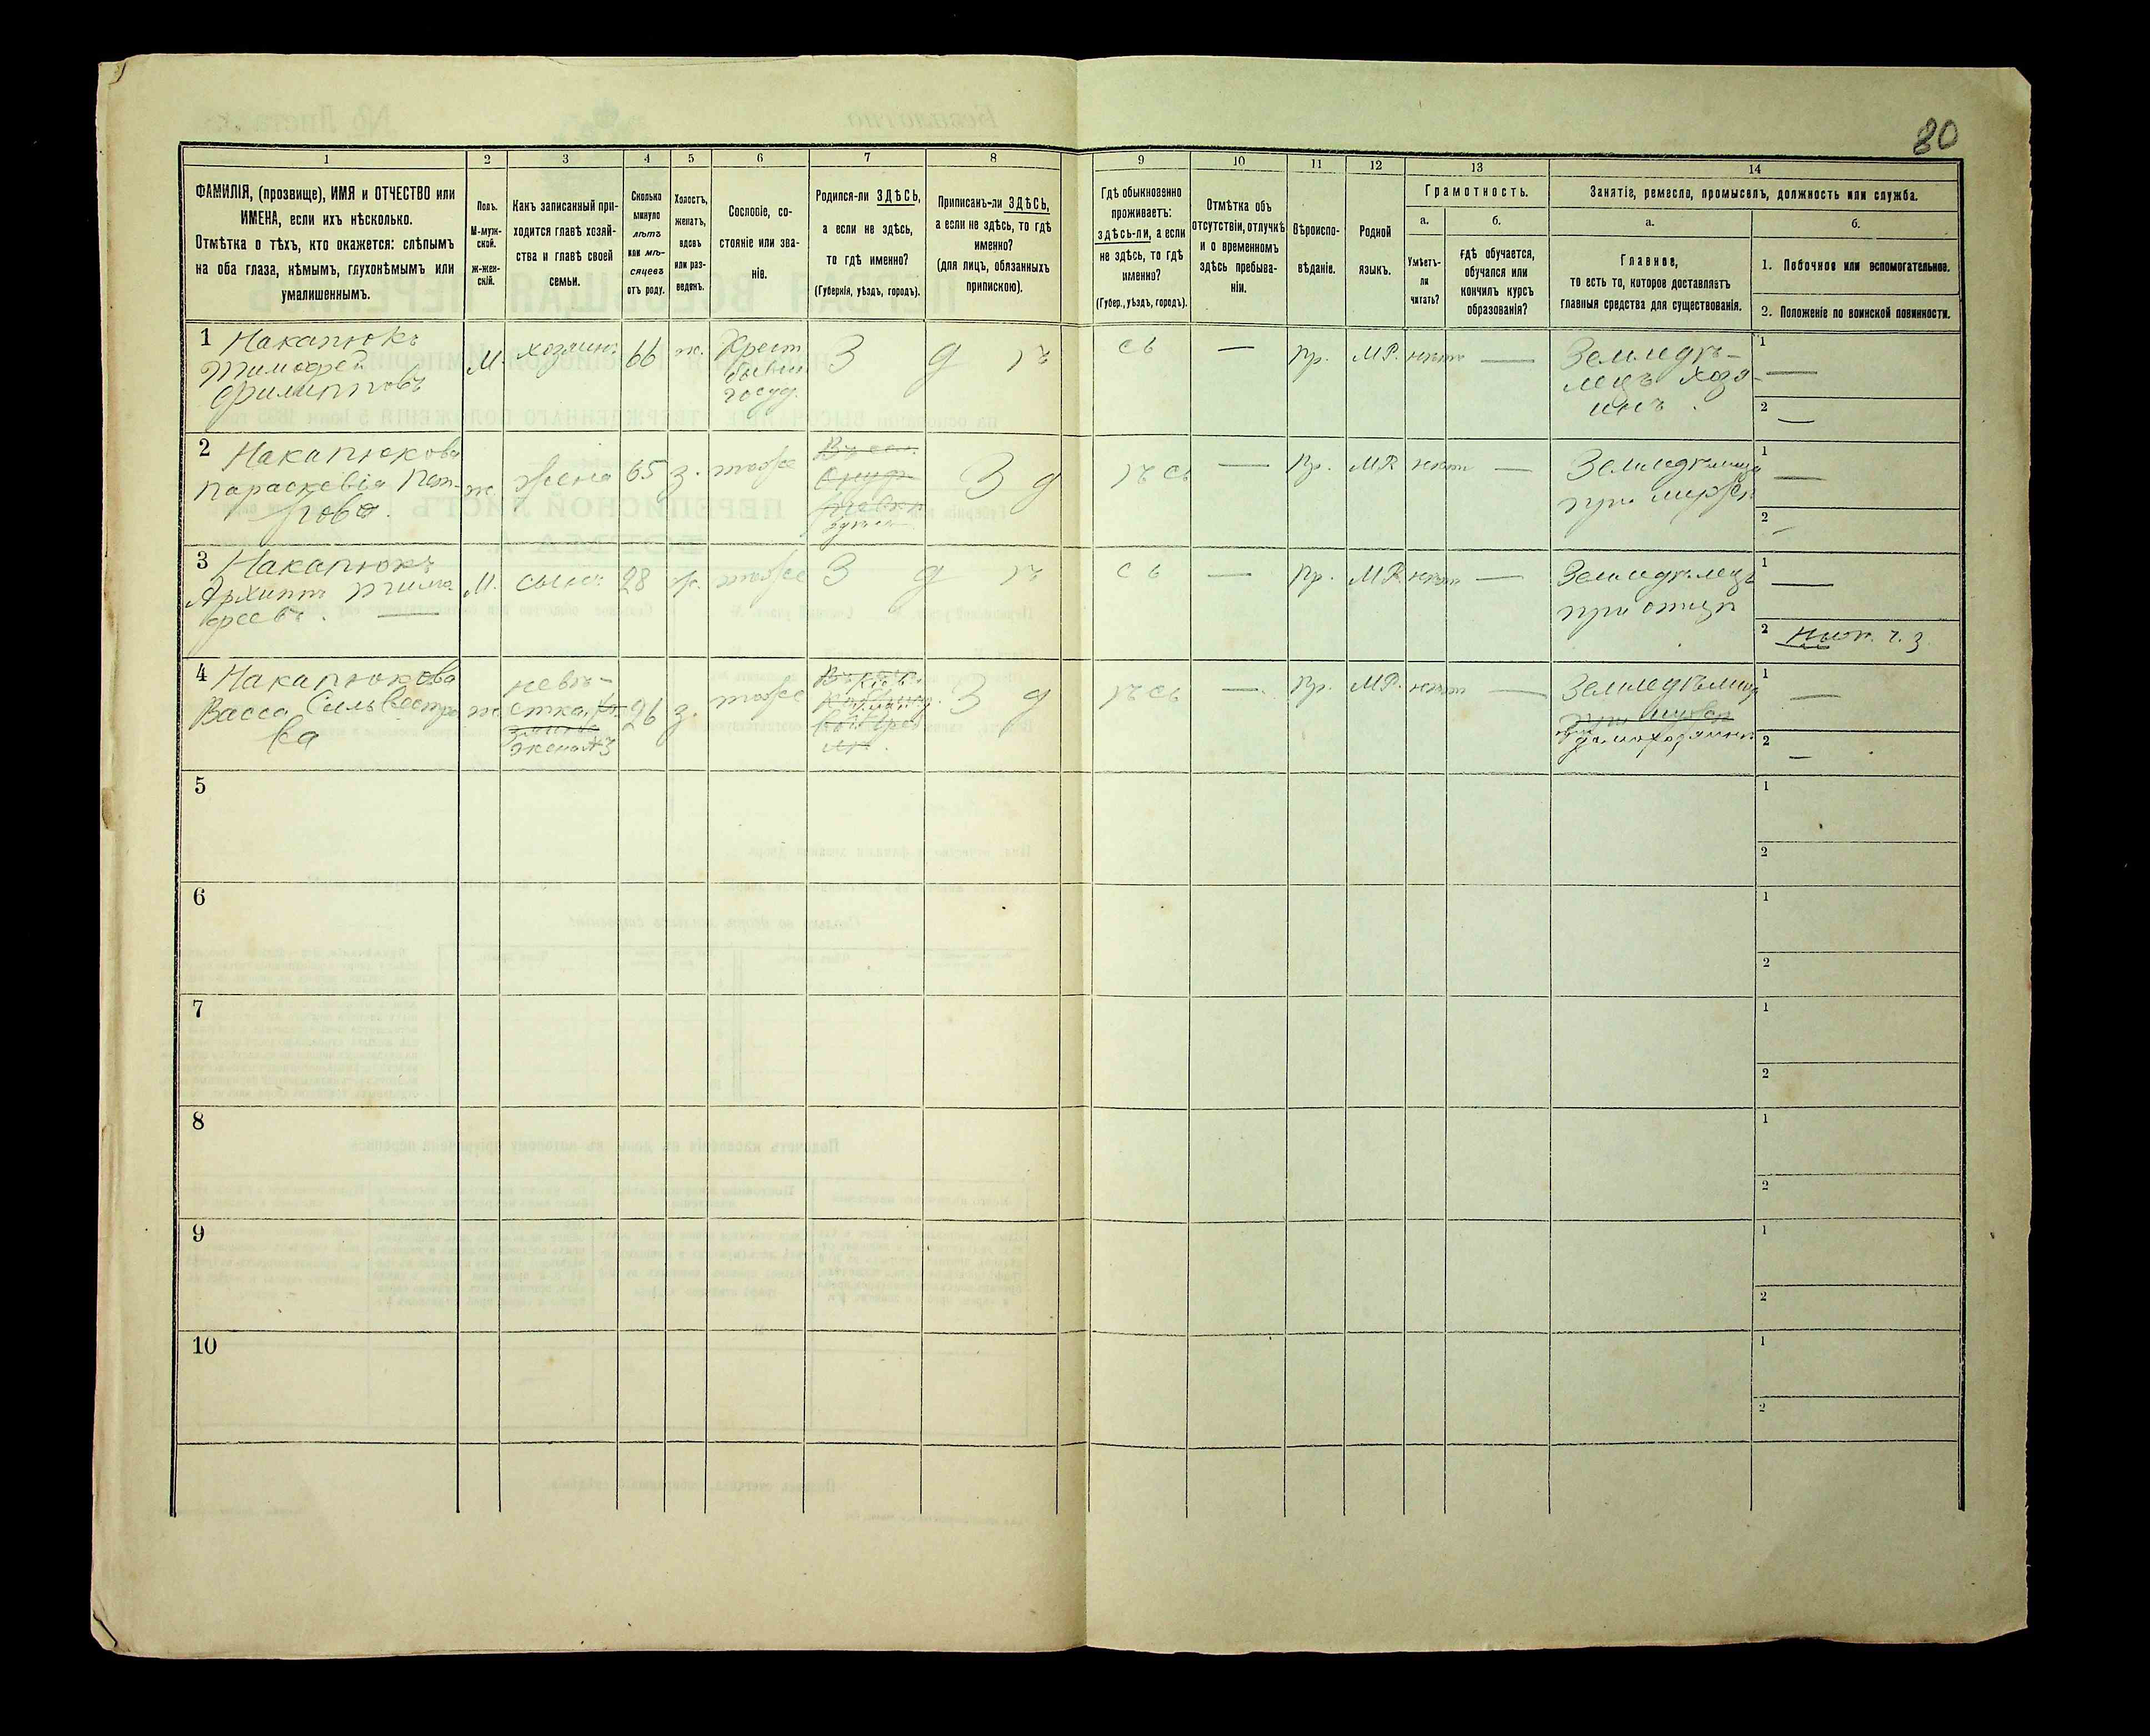 80
1
2
3
4
5
6
7
8
9
10
11
12
13
14
ФАМИЛІЯ, (прозвище), ИМЯ и ОТЧЕСТВО или
ИМЕНА, если ихъ нѣсколько.
Отмѣтка о тѣхъ, кто окажется: слѣпымъ
на оба глаза, нѣмымъ, глухонѣмымъ или
умалишеннымъ.
Полъ.
М-муж-
ской.
ж-жен-
скій.
Какъ записанный при-
ходится главѣ хозяй-
ства и главѣ своей
семьи.
Сколько
минуло
лѣтъ
или мѣ-
сяцевъ
отъ роду.
Холостъ,
женатъ,
вдовъ
или раз-
веденъ.
Сословіе, со-
стояніе или зва-
ніе.
Родился-ли ЗДѢСЬ,
а если не здѣсь,
то гдѣ именно?
(Губернія, уѣздъ, городъ).
Приписанъ-ли ЗДѢСЬ,
а если не здѣсь, то гдѣ
именно?
(для лицъ, обязанныхъ
припискою).
Гдѣ обыкновенно
проживаетъ:
здѣсь-ли, а если
не здѣсь, то гдѣ
именно?
(Губер., уѣздъ, городъ).
Отмѣтка объ
отсутствіи, отлучкѣ
и о временномъ
здѣсь пребыва-
ніи.
Вѣроиспо-
вѣданіе.
Родной
языкъ.
Грамотность.
а.
Умѣетъ-
ли
читать?
б.
гдѣ обучается,
обучался или
кончилъ курсъ
образованія?
Занятіе, ремесло, промыселъ, должность или служба.
а.
Главное,
то есть то, которое доставляетъ
главныя средства для существованія.
б.
1. Побочное или вспомогательное.
2. Положеніе по воинской повинности.
1 Накапюкъ
Тимофей
Филипповъ
М.
хозяинъ
66
ж.
Крест
бывш
госуд.
З д ѣ сь
—
Пр.
МР.
нѣтъ
—
Земледѣ-
лецъ хозя-
инъ.
1 —
2 —
2 Накапюкова
Параскевія Пет-
рова.
ж
жена
65
з.
тоже
З д ѣ сь
—
Пр.
МР
нѣтъ
—
Земледѣлица
при мужѣ
1 —
2 —
3 Накапюкъ
Архипъ Тимо-
феевъ. —
М.
сынъ
28
ж.
тоже
З д ѣ сь
—
Пр.
МР.
нѣтъ
—
Земледѣлецъ
при отцѣ
1 —
2
4 Накапюкова
Васса Сильвестро
ва
ж.
невѣ-
стка,
жена №3
26
з.
тоже
З д ѣ сь
—
Пр.
МР.
нѣтъ
—
Земледѣлица
при мужѣ
1 —
2 —
5
1
2
6
1
2
7
1
2
8
1
2
9
1
2
10
1
2